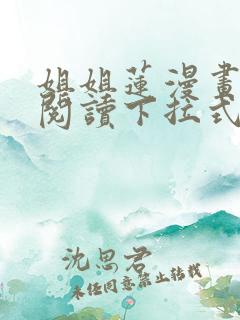 姐姐蓮漫畫
閱讀下拉式
沈思君
未经同意禁止转载